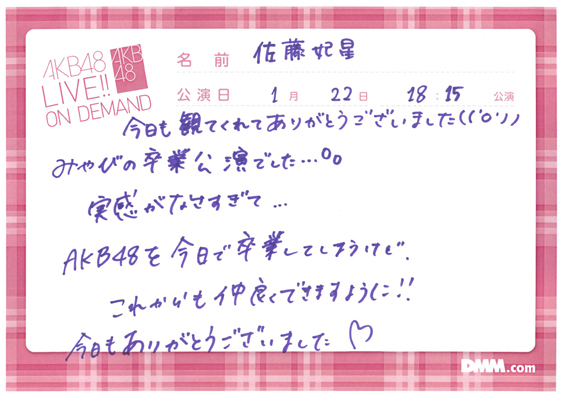 AKB48
LIVE!!
ON DEMAND
AKB
48
名前 佐藤妃星
公演日 1月 22日 18:15 公演
今日も観てくれてありがとうございました((´o`))
みやびの卒業公演でした…°o
実感がなさすぎて…
AKB48を今日で卒業してしまうけど、
これからも仲良くできますように!!
今日もありがとうございました♡
DMM.com